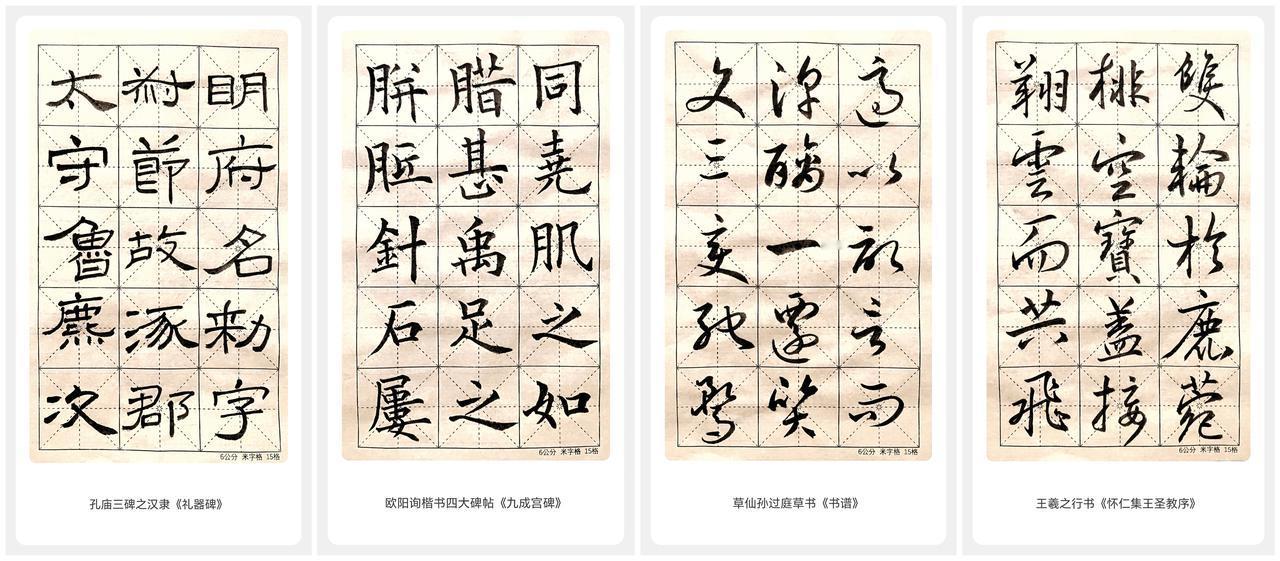 明府名勑字
叔節故涿郡
太守魯麃次
6公分 米字格 15格
孔庙三碑之汉隶《礼器碑》
同堯肌之如
腊甚禹足之
胼胝針石屢
6公分 米字格 15格
欧阳询楷书四大碑帖《九成宫碑》
適以記言而
淳醨一遷質
文三變馳騖
6公分 米字格 15格
草仙孙过庭草书《书谱》
雙輪於鹿菀
排空寶蓋接
翔雲而共飛
6公分 米字格 15格
王羲之行书《怀仁集王圣教序》